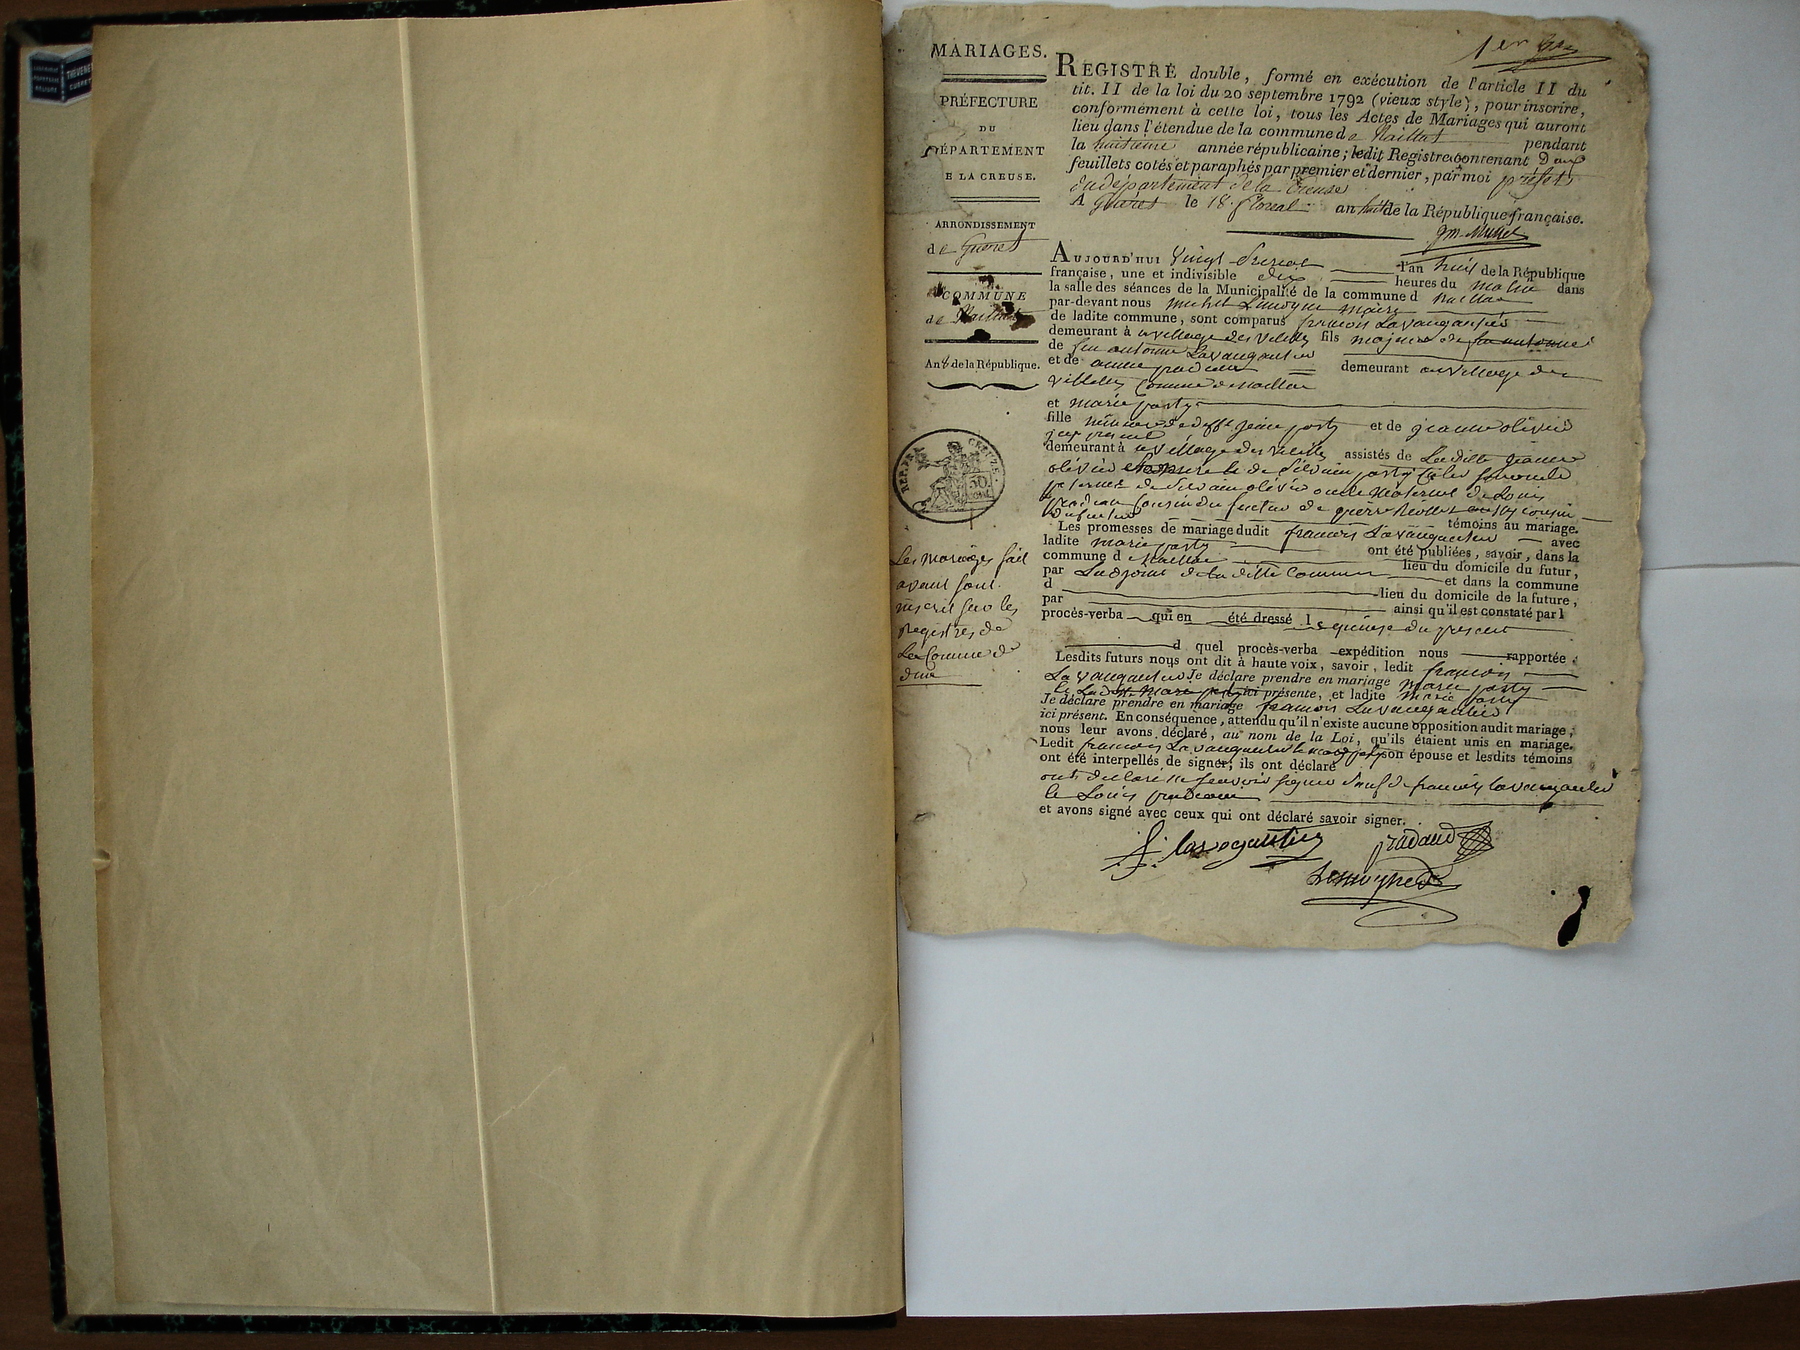 THEVENET
GUERET
MARIAGES.
PRÉFECTURE
DU
DÉPARTEMENT
E LA CREUSE.
ARRONDISSEMENT
de Gueret
COMMUNE
de Naillat
An 8 de la République.
REP. FRA. CREUZE.
Les mariages fait
avant sont
inscrit sur les
Registres de
La Commune de
dun
1er
REGISTRE double, formé en exécution de l'article II du
tit. II de la loi du 20 septembre 1792 (vieux style), pour inscrire,
conformément à cette loi, tous les Actes de Mariages qui auront
lieu dans l'étendue de la commune de Naillat pendant
la huitieme année républicaine; ledit Registre contenant Deux
feuillets cotés et paraphés par premier et dernier, par moi préfet
du département de la Creuse
A Guéret le 18 floreal an huit de la République française.
AUJOURD'HUI Vingt l'an huit de la République
française, une et indivisible dix heures du matin dans
la salle des séances de la Municipalité de la commune d Naillat
par-devant nous michel Lemoyne maire
de ladite commune, sont comparus francois Lavaugautier
demeurant à village des Villettes fils majeur de feu antoine
de feu antoine Lavaugautier
et de anne pradeau demeurant au village des
Villettes Commune de naillat
et marie party
fille mineure de defft jean party et de jeanne olivier
demeurant à village des Villettes assistés de La ditte jeanne
olivier de Silvain party
paternel de Silvain olivier oncle maternel de Louis
pradeau Cousin du futur de pierre cousin
témoins au mariage.
Les promesses de mariage dudit francois Lavaugautier avec
ladite marie party ont été publiées, savoir, dans la
commune d Naillat lieu du domicile du futur,
par Ladjoint de la ditte Commune et dans la commune
d lieu du domicile de la future,
par ainsi qu'il est constaté par l
procès-verba qui en été dressé le quinze du present
d quel procès-verba expédition nous rapportée;
Lesdits futurs nous ont dit à haute voix, savoir, ledit francois
Lavaugautier Je déclare prendre en mariage marie party
ici présente, et ladite marie party
Je déclare prendre en mariage francois Lavaugautier
ici présent. En conséquence, attendu qu'il n'existe aucune opposition audit mariage,
nous leur avons déclaré, au nom de la Loi, qu'ils étaient unis en mariage.
Ledit francois Lavaugautier son épouse et lesdits témoins
ont été interpellés de signer; ils ont déclaré
ont declaré ne scavoir signer sauf de francois lavaugautier
le Louis pradeau
et avons signé avec ceux qui ont déclaré savoir signer.
f. lavogautier pradaud
Lemoyne